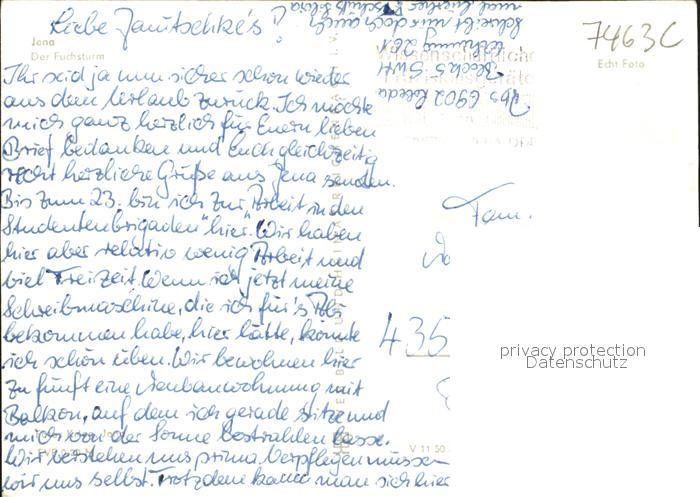 Liebe Janitschke's!
7463C
Jena
Der Fuchsturm
Echt Foto
Ihr seid ja nun sicher schon wieder
aus dem Urlaub zurück. Ich möchte
mich ganz herzlich für Euern lieben
Brief bedanken und Euch gleichzeitig
recht herzliche Grüße aus Jena senden.
Bis zum 23. bin ich zur "Arbeit in den
Studentenbrigaden" hier. Wir haben
hier aber relativ wenig Arbeit und
viel Freizeit. Wenn ich jetzt meine
Schreibmaschine, die ich für's
bekommen habe, hier hätte, könnte
ich schön üben. Wir bewohnen hier
zu fünft eine Neubauwohnung mit
Balkon, auf dem ich gerade sitze und
mich von der Sonne bestrahlen lasse.
Wir verstehen uns prima. Verpflegen müssen
wir uns selbst. Trotzdem kann man sich hier
6902 Lobeda
Block 5
Wohnung 261
Schreibt uns doch auch
mal
Fam.
435
privacy protection
Datenschutz
V 11 50